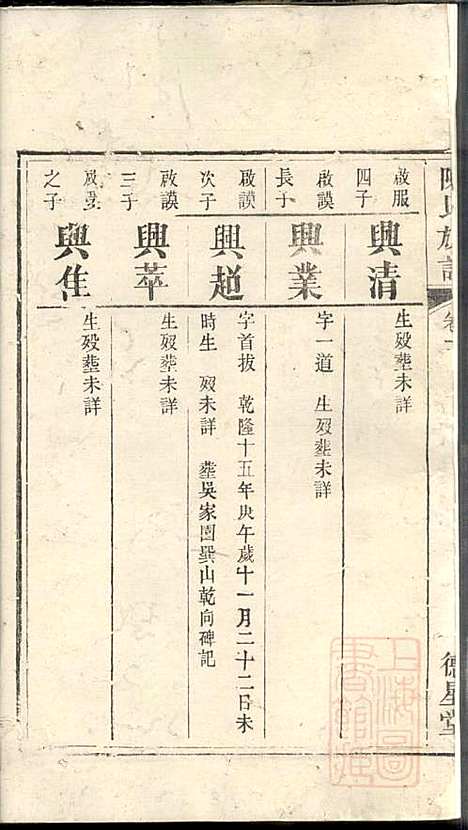 陳氏族譜
卷一
德星堂
啟服
四子
興清
生歿塟未詳
啟謨
長子
興業
字一道 生歿塟未詳
啟謨
次子
興超
字首拔 乾隆十五年庚午歲十一月二十二日未
時生 歿未詳 塟吳家園巽山乾向碑記
啟謨
三子
興萃
生歿塟未詳
之子
興隹
生歿塟未詳
上海圖
書館藏